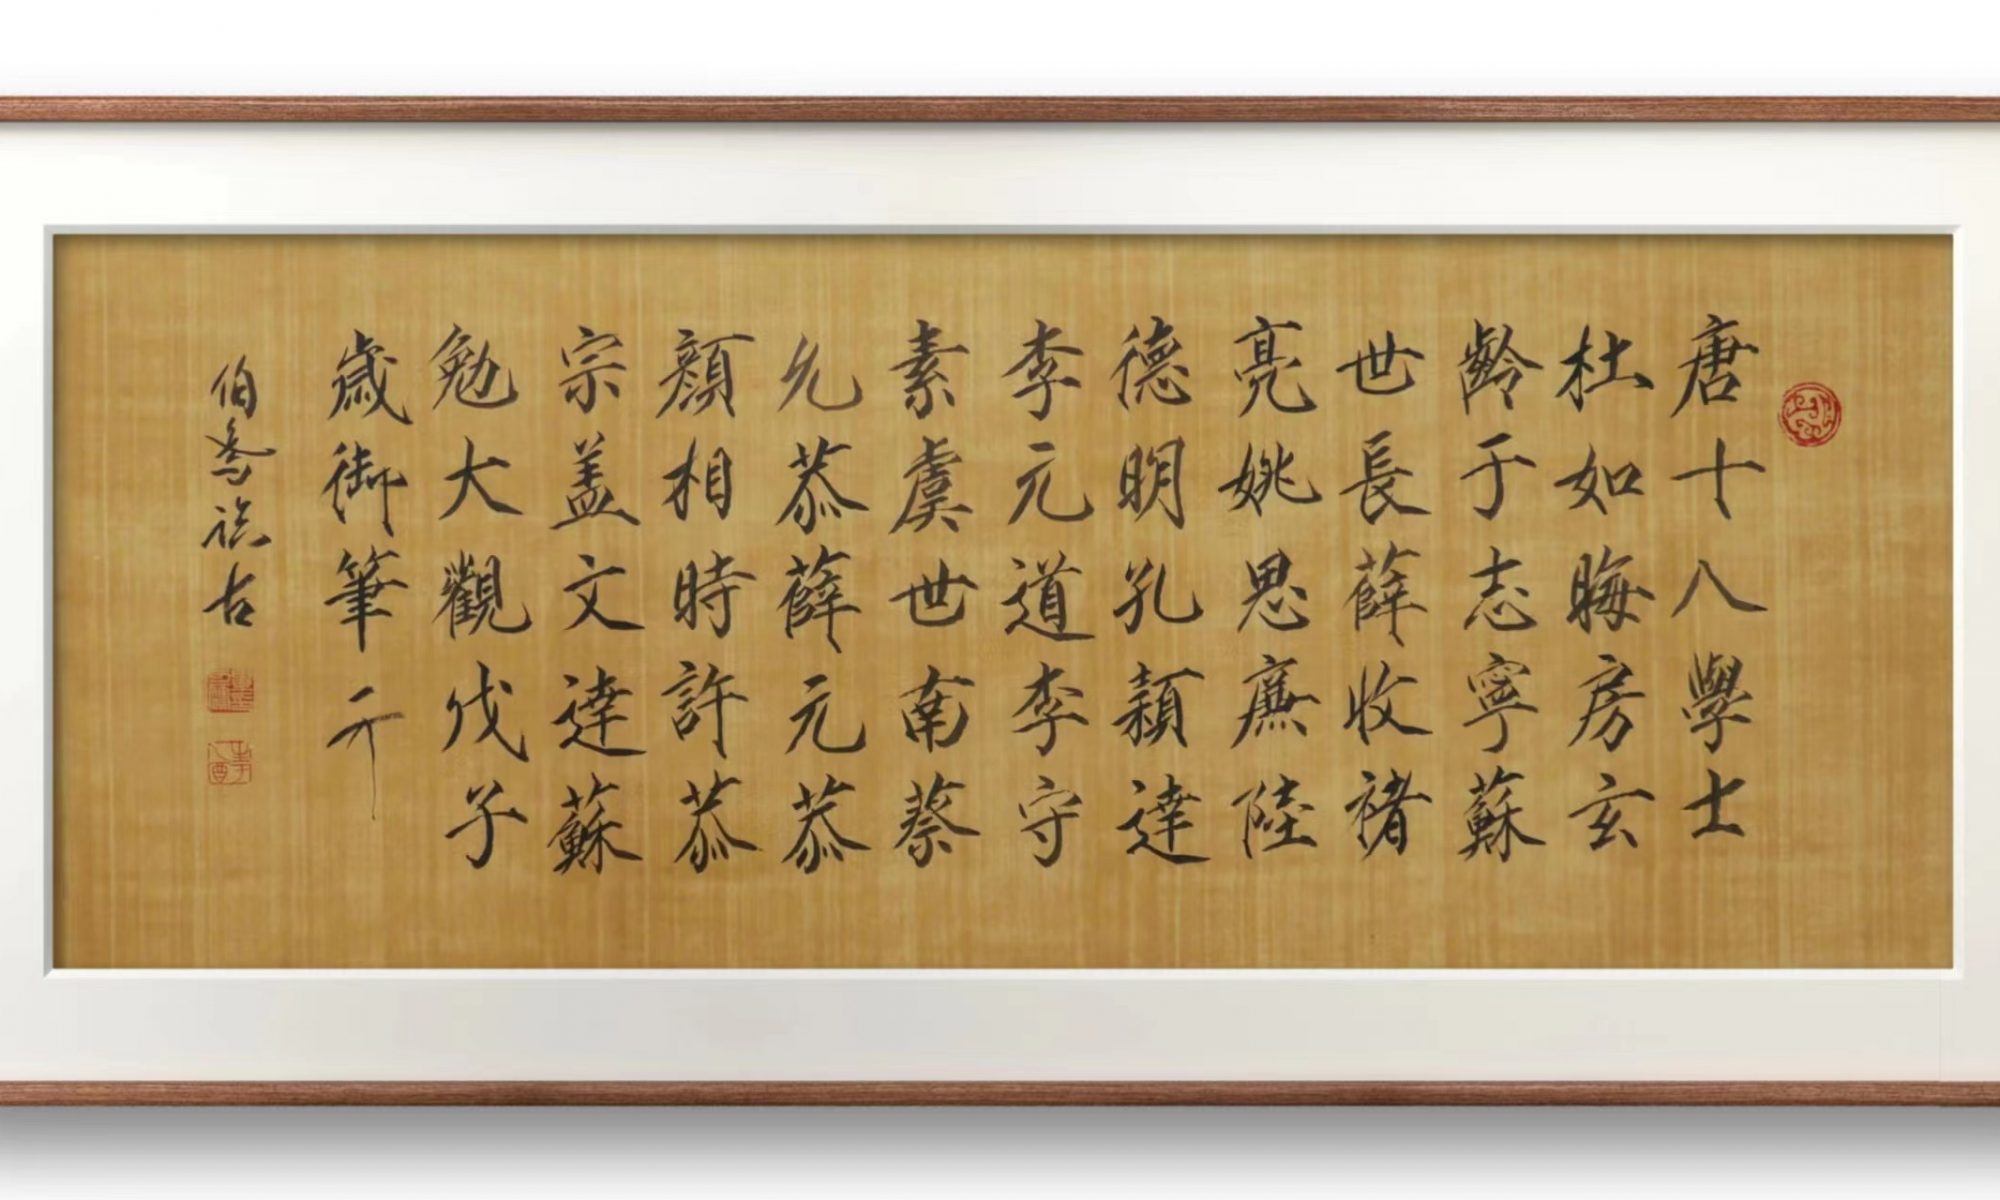 唐十八學士
杜如晦房玄
齡于志寧蘇
世長薛收褚
亮姚思廉陸
德明孔穎達
李元道李守
素虞世南蔡
允恭薛元恭
顏相時許恭
宗盖文達蘇
勉大觀戊子
歲御筆
伯臨古